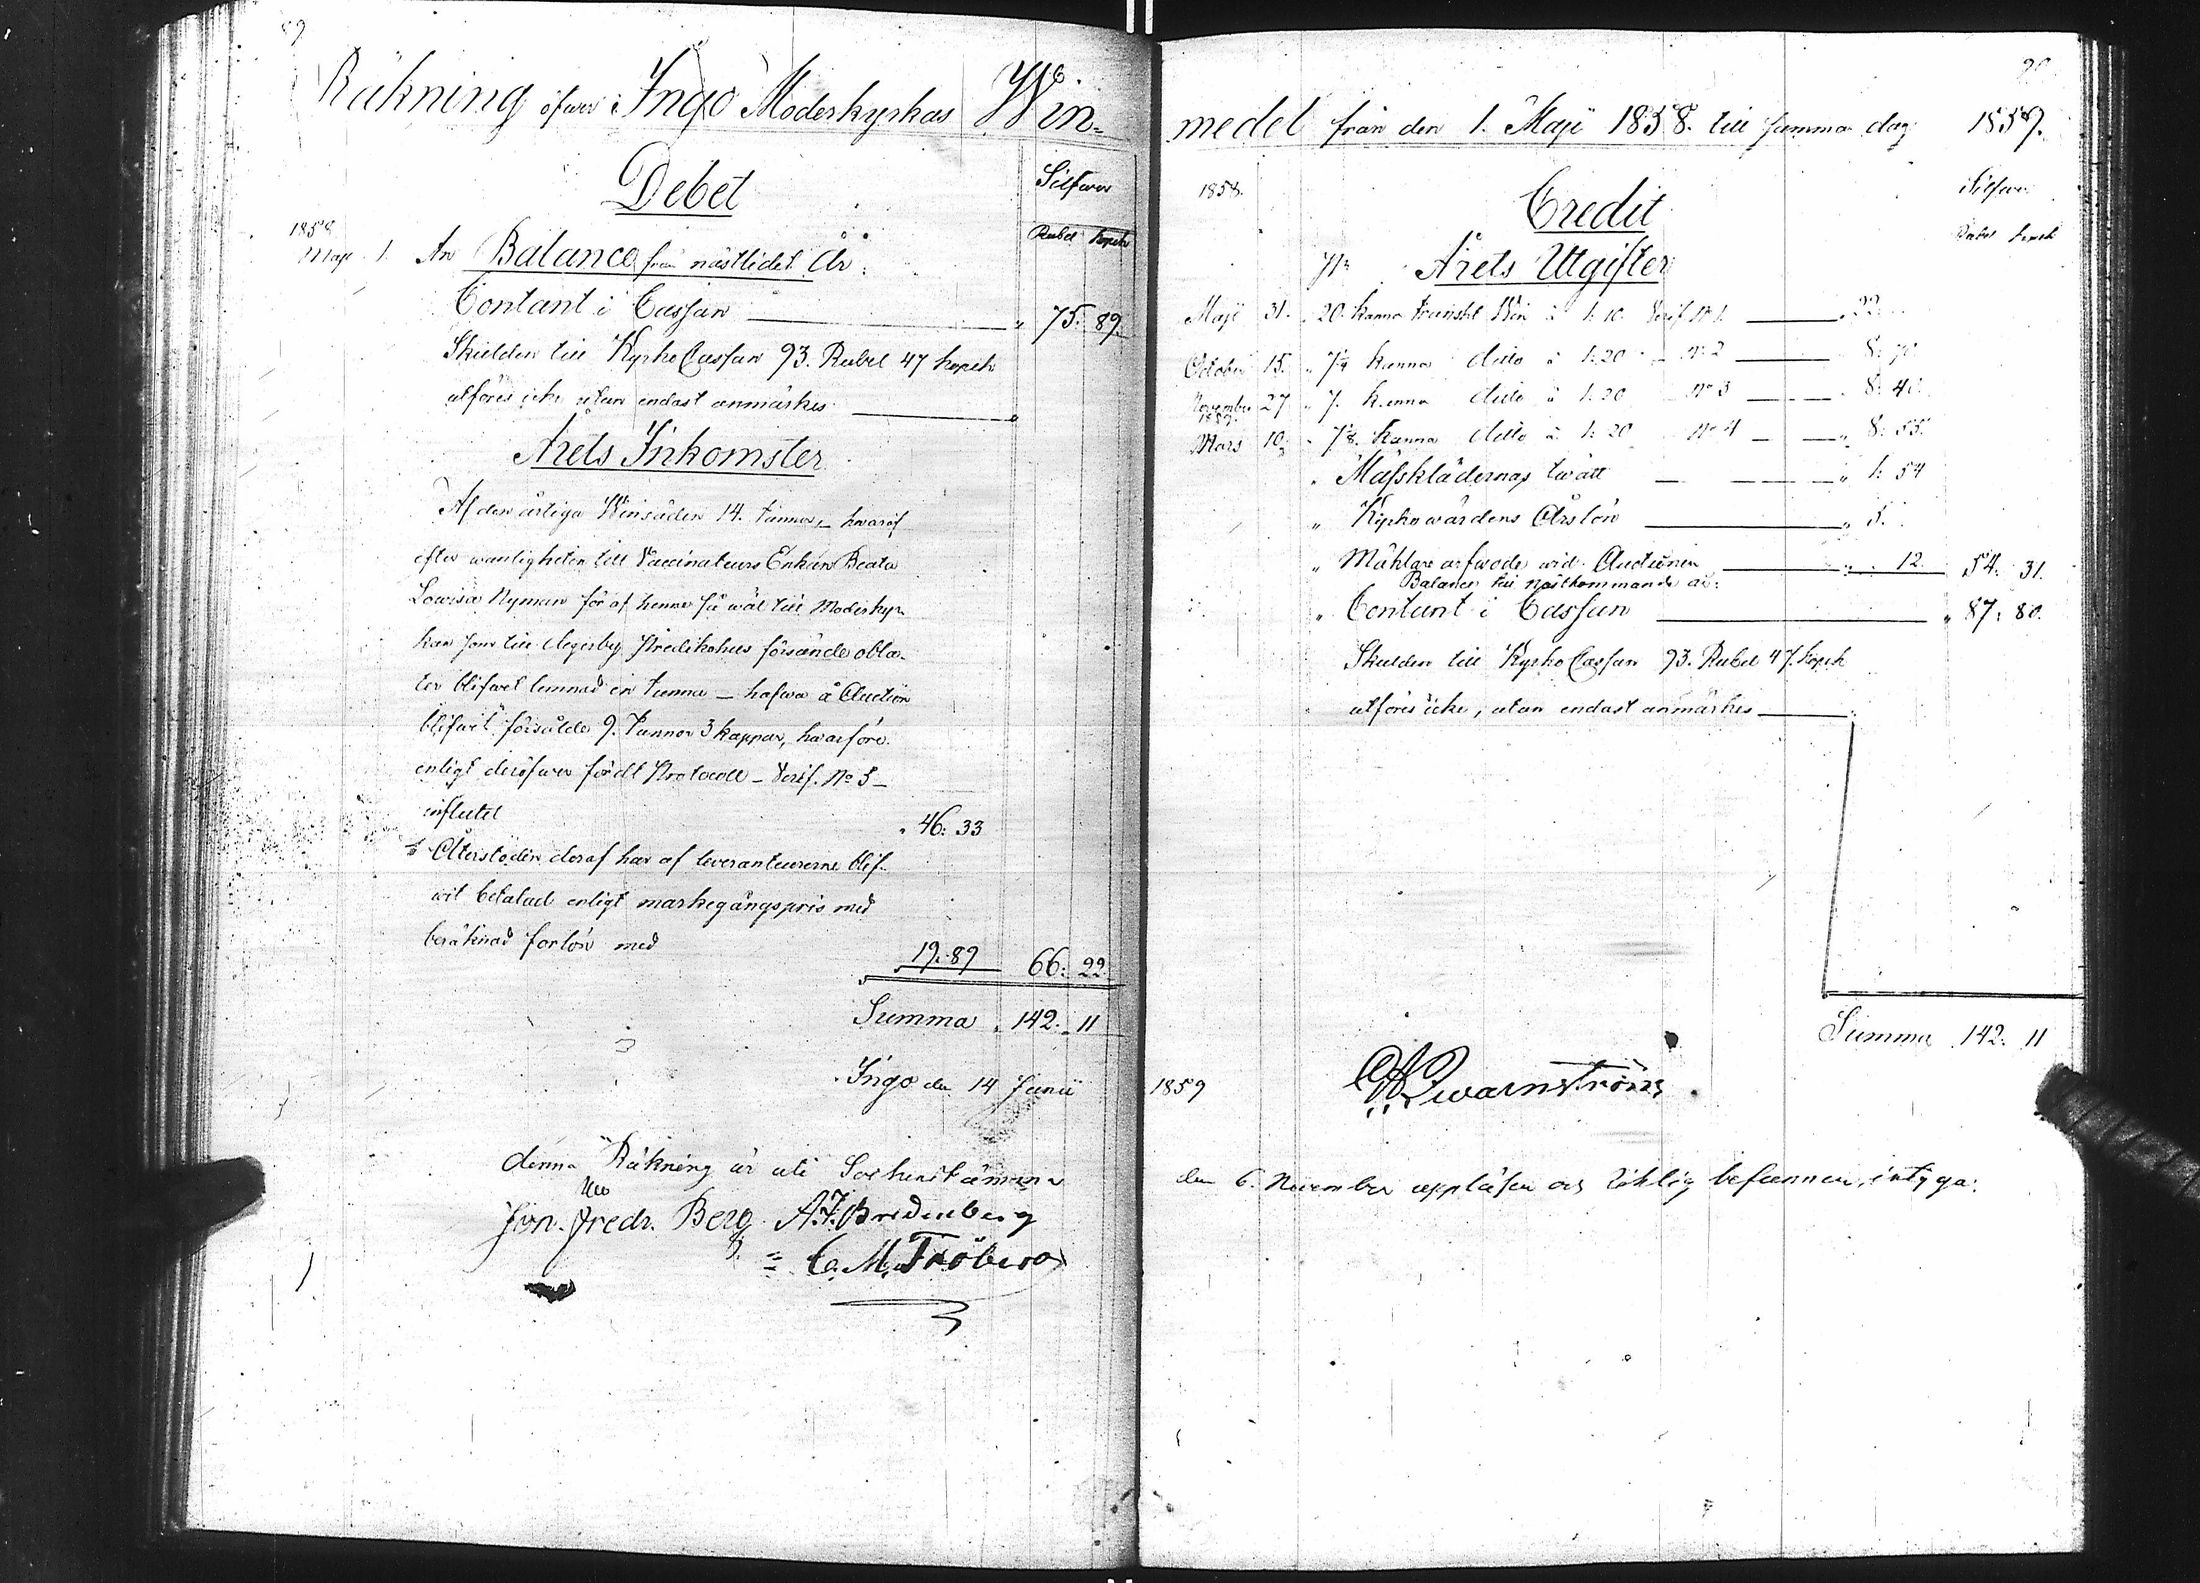 89
Räkning öfwer Ingo Moderkyrkas Win=
Debet
Silfwer
Rubel Kopek
1858
Maji 1. An Balance från nästlidet År:
Contant i Cassan " 75. 89.
Skulden till Kyrko Cassan 93. Rubel 47 kopek
utföres icke utan endast anmärkes
Årets Inkomster
Af den årliga Winsäden 14. tunnor, hwaraf
efter wanligheten till Vaccinateurs Enkan Beata
Lowisa Nyman för af henne så wäl till Moderkyr=
kan som till Degerby Predikohus försände obla-
ter blifwit lemnad en tunna _ hafwa å Auction
blifwit försålde 9. Tunnor 3 kappar, hwarföre
enligt deröfwer fördt Protocoll _ Verif. No 5 _
influtit " 46: 33
Återstoden deraf har af leveranteurerne blif-
wit betalad enligt markegångspris med
beräknad forlön med " 19: 89 66: 22.
Summa " 142. 11
Ingo den 14 Junii
denna Räkning är uti Sockenstämman
Jon. Fredr. Berg. A. F. Bredenberg
C. M. Fröberg
90
medel från den 1. Maji 1858. till samma dag 1859.
1858.
Credit
Silfwer
Rubel kopek
Pr Årets Utgifter
Maji 31. " 20. kanna franskt Win à 1: 10. Verif No 1. " 22. "
October 15. " 7 1/4 kanna dito à 1: 20 " No 2 " 8: 70
November 27 " 7. kanna dito à 1: 20 No 3 " 8: 40.
1859.
Mars 10. " 7 1/8. kanna ditto à 1: 20 No 4 " 8: 55.
" Mässklädernas twätt " 1: 54
" Kyrkowärdens Årslön " 5. "
" Mäklare arfwode wid Auctionen " " 12. 54. 31.
Balance till nästkommande år:
" Contant i Cassan " 87: 80.
Skulden till Kyrko Cassan 93. Rubel 47. kopek
utföres icke, utan endast anmärkes
Summa 142: 11
1859 Qwarnström
den 6. November uppläsen och riktig befunnen, intyga: